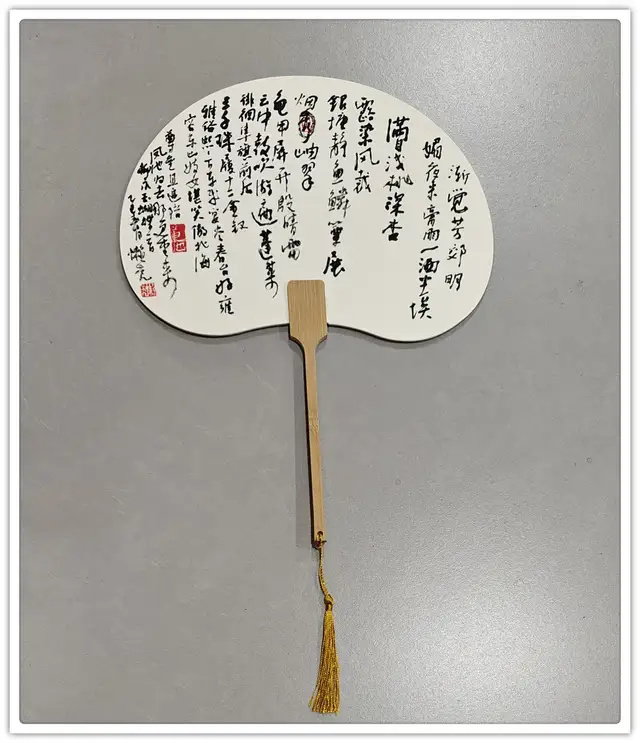 渐觉芳郊明
媚夜来膏雨一洒尘埃
满目浅桃深杏
露染风裁
银塘静鱼鳞簟展
烟岫翠
龟甲屏开殷晴雷
云中鼓吹游遍蓬莱
徘徊隼旟前后
三千珠履十二金钗
雅俗熙熙下车成宴尽春台好雍
容东山妓女堪笑傲北海
尊罍且追陪
凤池归去那更重来
柳永玉蝴蝶